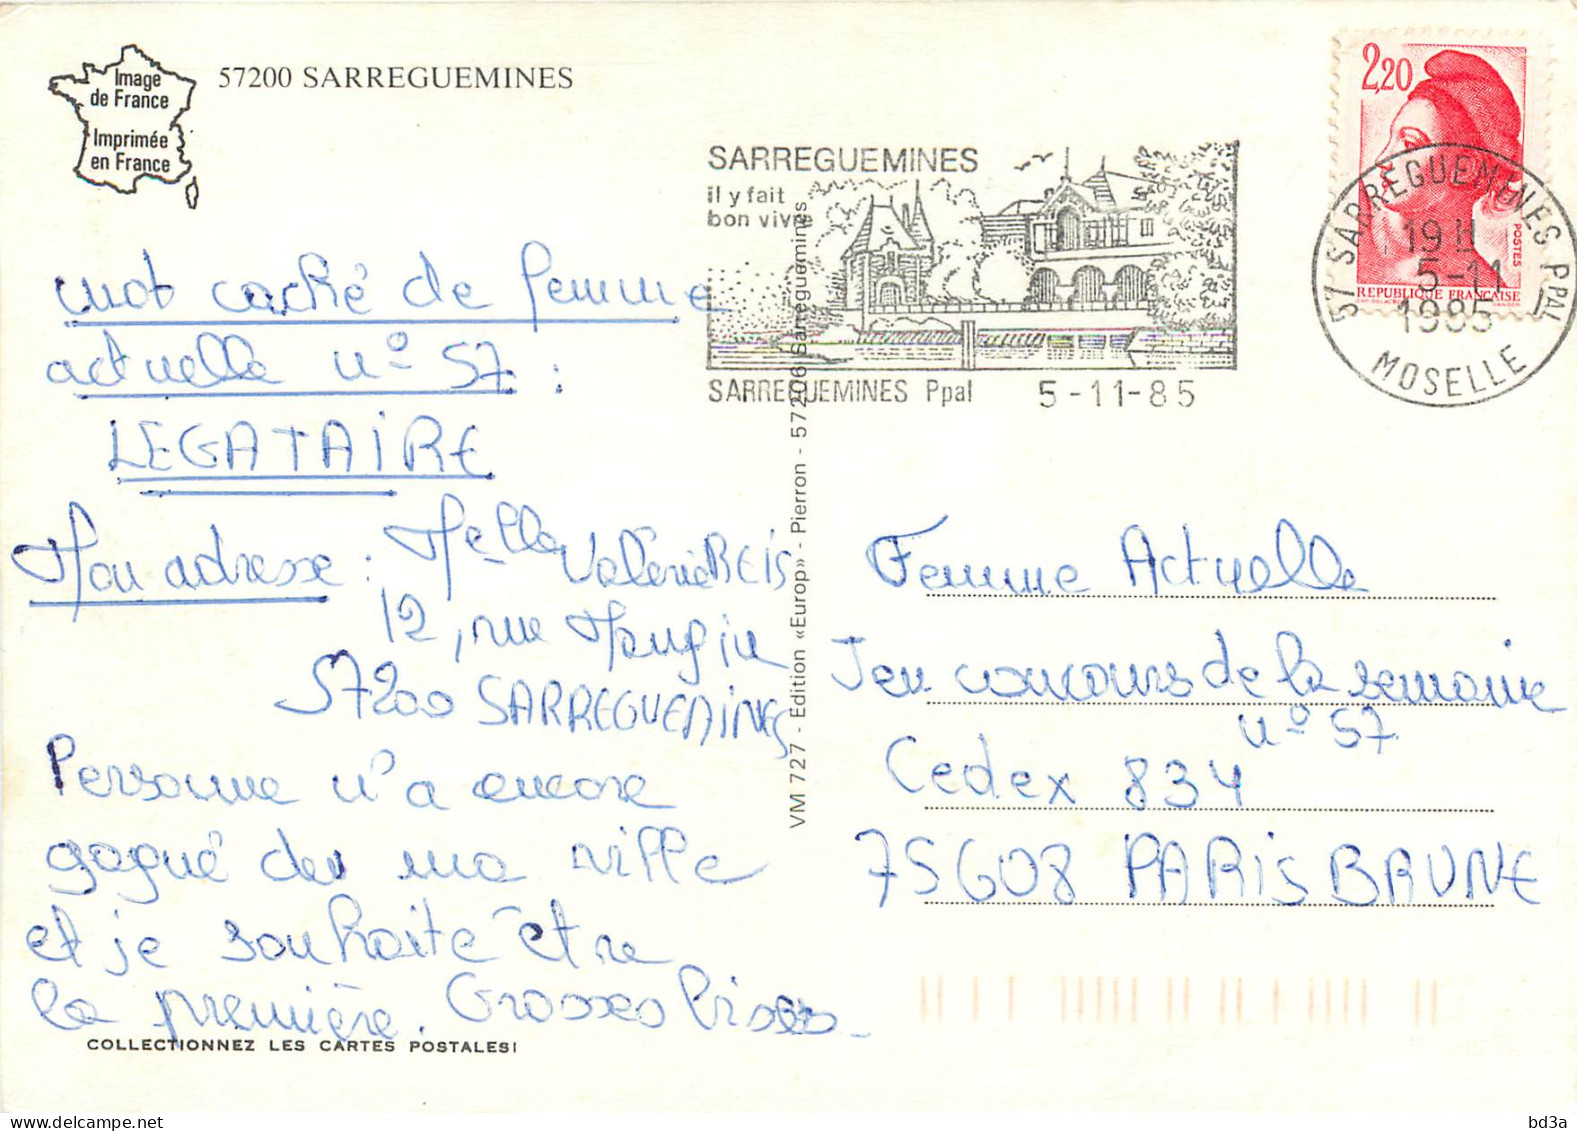 Image
de France
Imprimée
en France
57200 SARREGUEMINES
SARREGUEMINES
il y fait
bon vivre
SARREGUEMINES Ppal 5-11-85
2,20
POSTES
REPUBLIQUE FRANÇAISE
57 SARREGUEMINES PPAL
19H
5-11
1985
MOSELLE
mot caché de femme
actuelle n° 57 :
LEGATAIRE
Mon adresse : Melle Valérie REIS
12, rue Mangin
57200 SARREGUEMINES
Personne n'a encore
gagné de ma ville
et je souhaite être
la première. Grosses bises.
COLLECTIONNEZ LES CARTES POSTALES!
VM 727 - Edition «Europ» - Pierron - 57206 Sarreguemines
Femme Actuelle
Jeu concours de la semaine
n° 57
Cedex 834
75608 PARIS BRUNE
bd3a